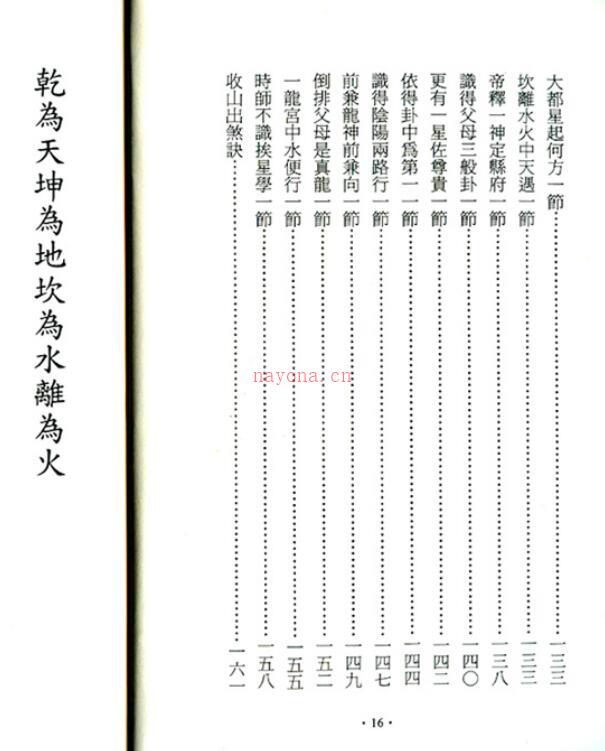 大都星起何方一節……一三三
坎離水火中天過一節……一三三
帝釋一神定縣府一節……一三八
識得父母三般卦一節……一四〇
更有一星佐尊貴一節……一四二
依得卦中為第一一節……一四四
識得陰陽兩路行一節……一四七
前兼龍神前兼向一節……一四九
倒排父母是真龍一節……一五二
一龍宮中水便行一節……一五五
時師不識挨星學一節……一五八
收山出煞訣……一六一
·16·
乾為天坤為地坎為水離為火
nayona.cn